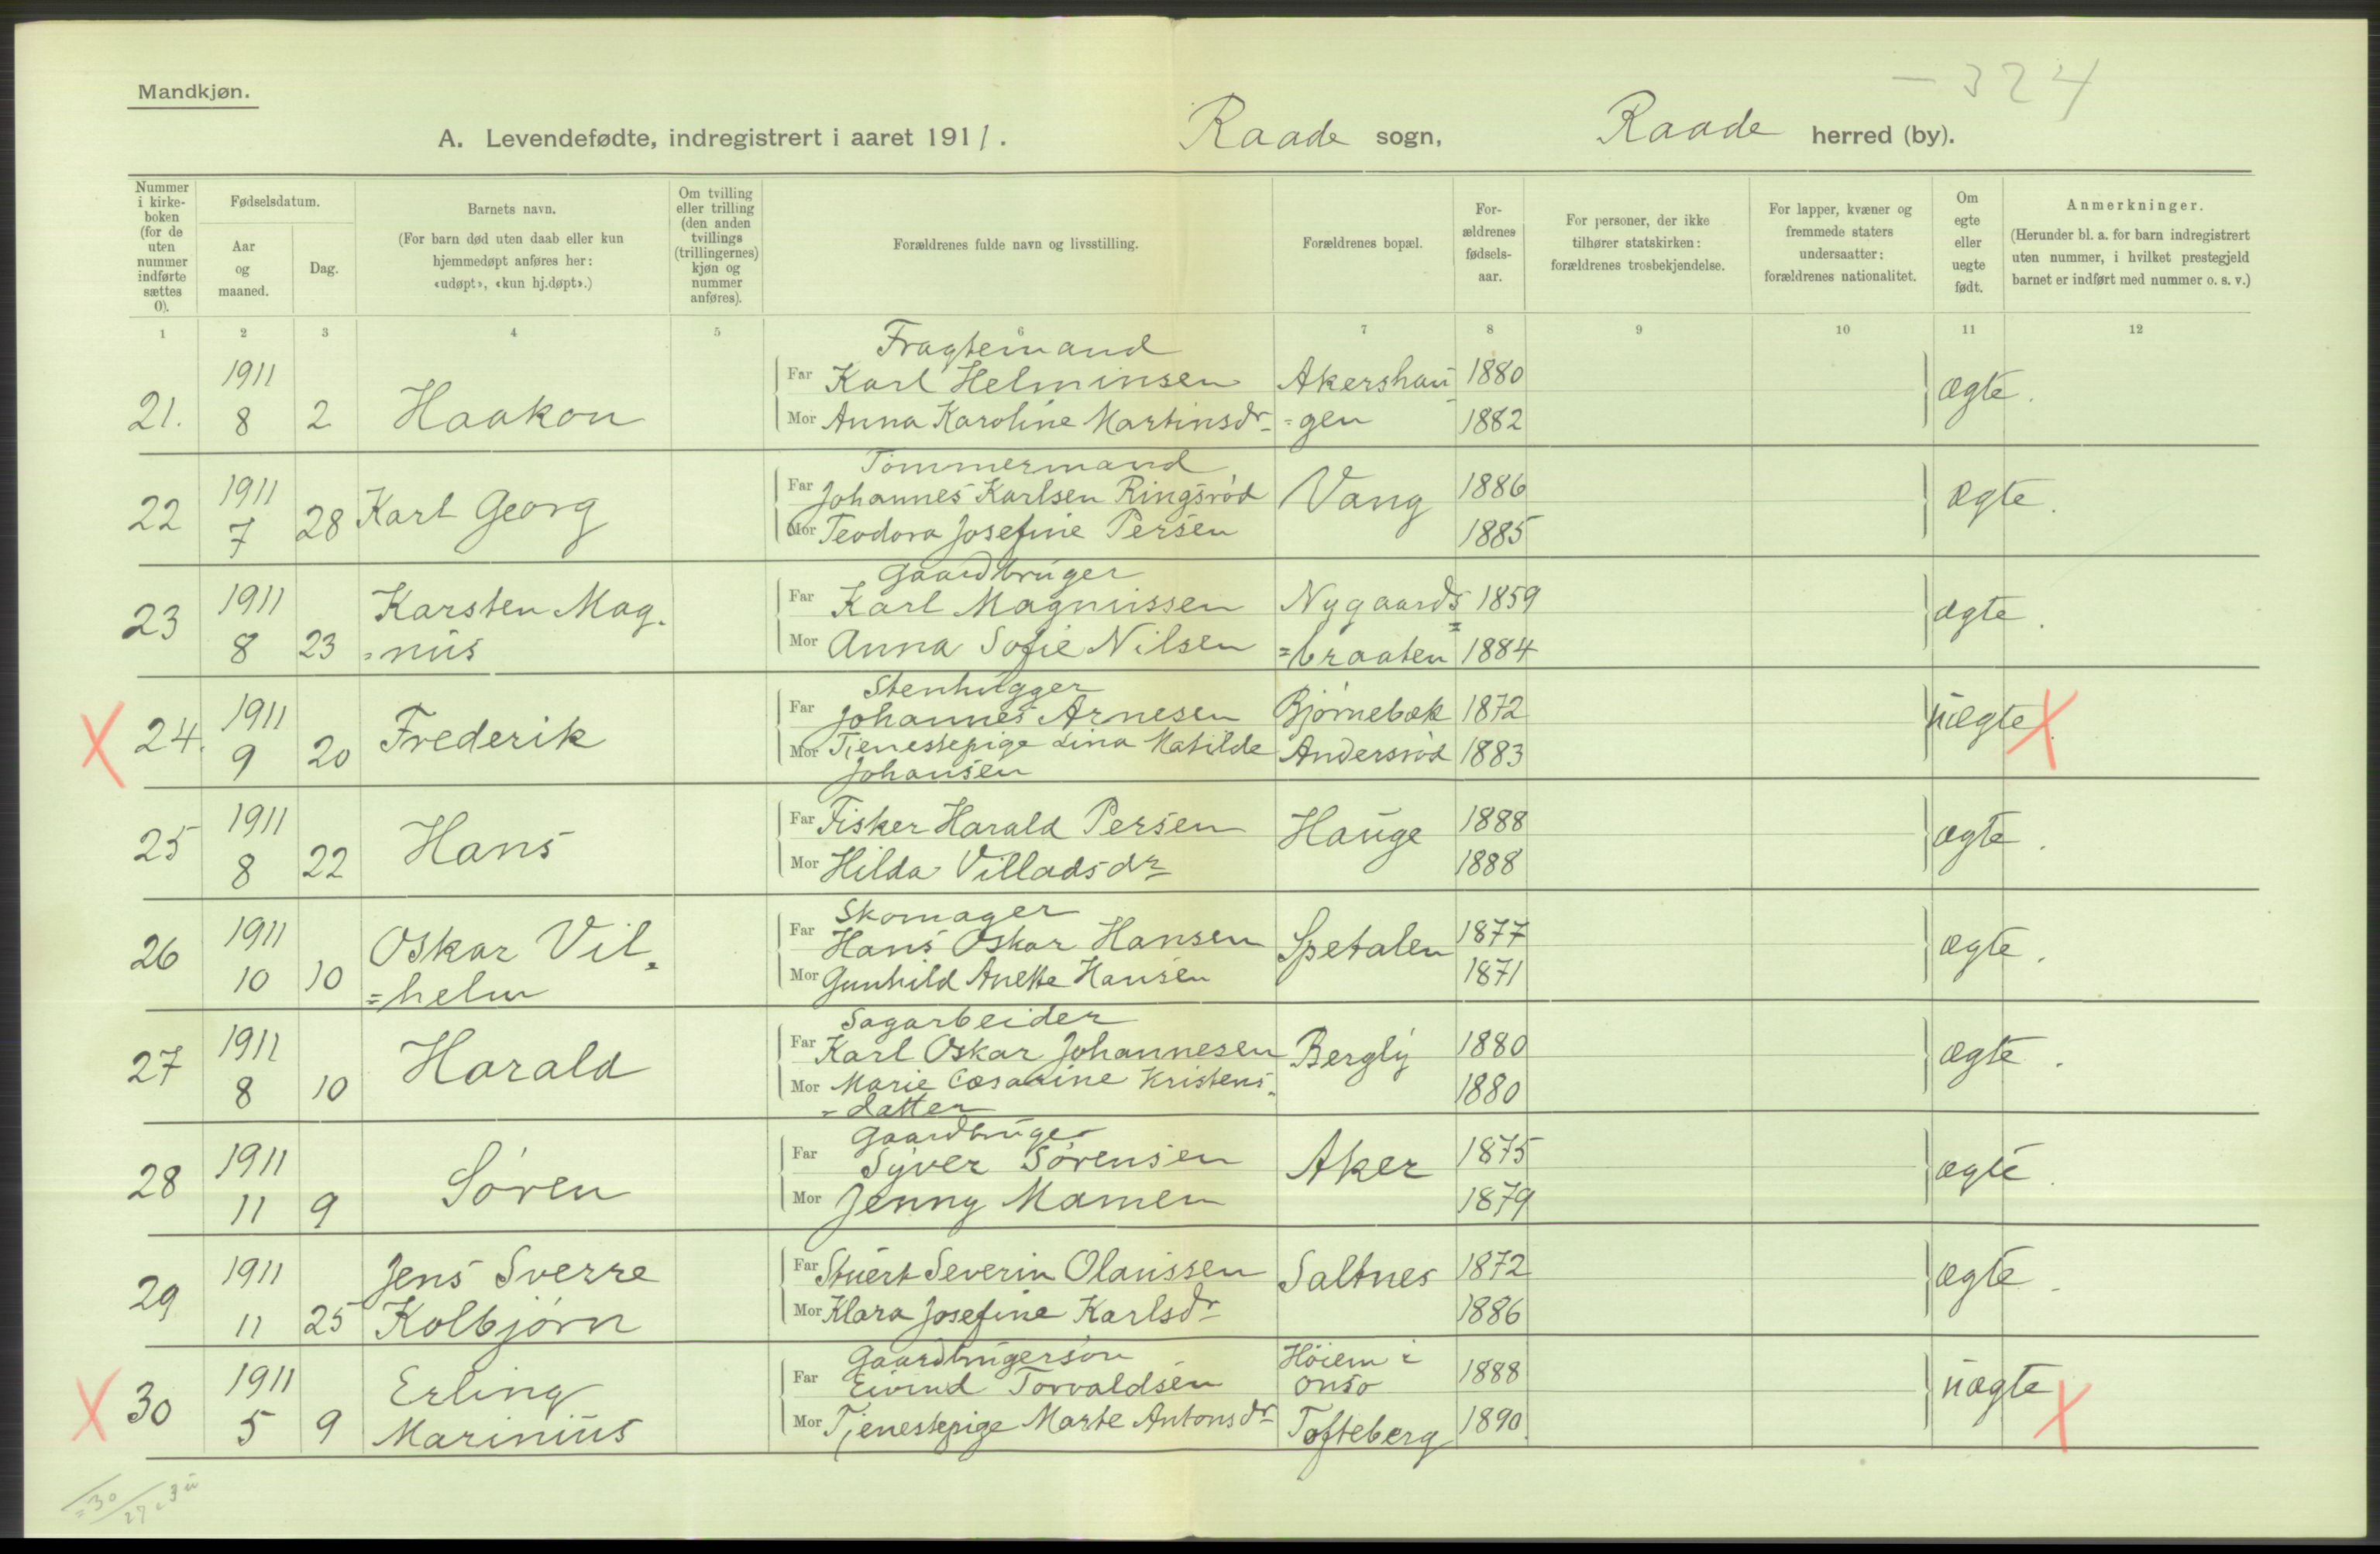 - 324
Mandkjøn.
A. Levendefødte, indregistrert i aaret 1911. Raade sogn, Raade herred (by).
Nummer i kirke-boken (for de uten nummer indførte sættes 0).
Fødselsdatum.
Aar og maaned.
Dag.
Barnets navn.
(For barn død uten daab eller kun
hjemmedøpt anføres her:
«udøpt», «kun hj.døpt».)
Om tvilling
eller trilling
(den anden
tvillings
(trillingernes)
kjøn og
nummer
anføres).
Forældrenes fulde navn og livsstilling.
Forældrenes bopæl.
For-
ældrenes
fødsels-
aar.
For personer, der ikke
tilhører statskirken:
forældrenes trosbekjendelse.
For lapper, kvæner og
fremmede staters
undersaatter:
forældrenes nationalitet.
Om
egte
eller
uegte
født.
Anmerkninger.
(Herunder bl. a. for barn indregistrert
uten nummer, i hvilket prestegjeld
barnet er indført med nummer o. s. v.)
1 2 3 4 5 6 7 8 9 10 11 12
Fragtemand
1911 Far Karl Helminsen Akershau- 1880
21. 8 2 Haakon Mor Anna Karoline Martinsdr =gen 1882 ægte.
Tømmermand
1911 Far Johannes Karlsen Ringsrød Vang 1886
22 7 28 Karl Georg Mor Teodora Josefine Persen 1885 ægte.
Gaardbruger
1911 Karsten Mag- Far Karl Magnussen Nygaards= 1859
23 8 23 =nus Mor Anna Sofie Nilsen =braaten 1884 ægte.
Stenhugger
1911 Far Johannes Arnesen Bjørnebæk 1872
X 24. 9 20 Frederik Mor Tjenestepige Lina Matilde Andersrød 1883 uægte. X
Johansen
1911 Far Fisker Harald Persen Hauge 1888
25 8 22 Hans Mor Hilda Villadsdr 1888 ægte.
Skomager
1911 Oskar Vil- Far Hans Oskar Hansen Spetalen 1877
26 10 10 =helm Mor Gunhild Anette Hansen 1871 ægte.
Sagarbeider
1911 Far Karl Oskar Johannesen Bergly 1880
27 8 10 Harald Mor Marie Cæsarine Kristens- 1880 ægte.
-datter
Gaardbruger
1911 Far Syver Sørensen Aker 1875
28 11 9 Søren Mor Jenny Mamen 1879 ægte.
1911 Jens Sverre Far Stuert Severin Olaussen Saltnes 1872
29 11 25 Kolbjørn Mor Klara Josefine Karlsdr 1886 ægte.
Gaardbrugersøn Høiem i
1911 Erling Far Eivind Torvaldsen Onsø 1888
X 30 5 9 Marinius Mor Tjenestepige Marte Antonsdr Tofteberg 1890. uægte X
=30